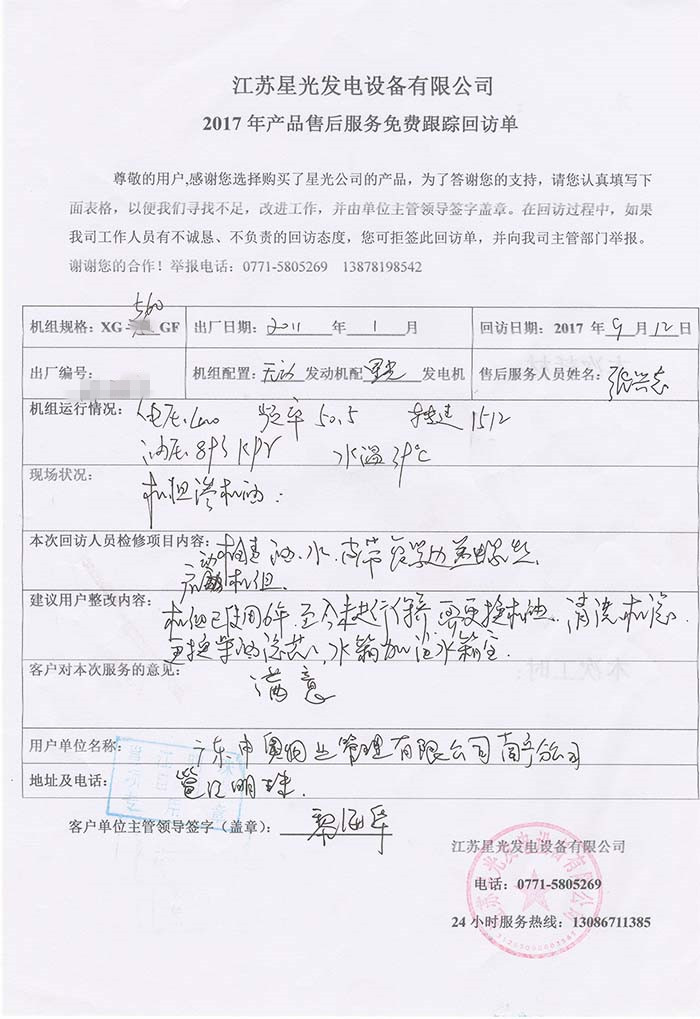 江苏星光发电设备有限公司
2017 年产品售后服务免费跟踪回访单
尊敬的用户,感谢您选择购买了星光公司的产品，为了答谢您的支持，请您认真填写下
面表格，以便我们寻找不足，改进工作，并由单位主管领导签字盖章。在回访过程中，如果
我司工作人员有不诚恳、不负责的回访态度，您可拒签此回访单，并向我司主管部门举报。
谢谢您的合作！举报电话：0771-5805269 13878198542
560
机组规格：XG- GF 出厂日期：2011 年 1 月 回访日期：2017 年 9 月 12 日
出厂编号： 机组配置：无动 发动机配 星光 发电机 售后服务人员姓名：张兴志
机组运行情况：电压 400 频率 50.5 转速 1512
油压 KPa 水温 ℃
现场状况：
机组渗机油.
本次回访人员检修项目内容：检查油.水.皮带
启动机组
建议用户整改内容：
机组已使用6年.至今未进行保养 要更换机油.清洗机滤.
更换柴油滤芯,水箱加注水箱宝
客户对本次服务的意见：
满意
用户单位名称：广东中奥物业管理有限公司南宁分公司
地址及电话：邕江明珠.
客户单位主管领导签字（盖章）：
江苏星光发电设备有限公司
电话：0771-5805269
24 小时服务热线：13086711385